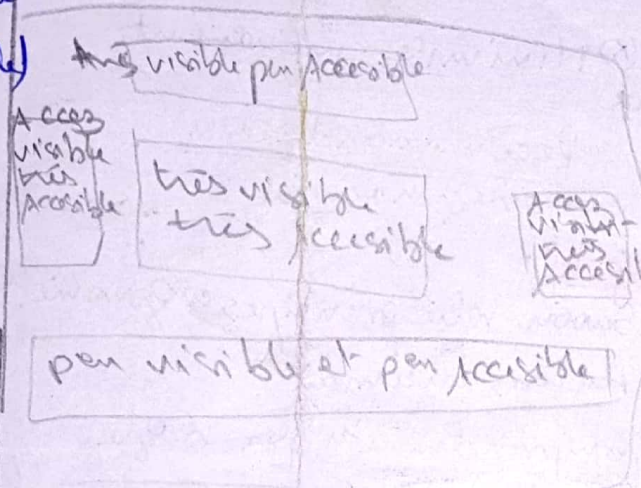 très visible peu Accesible
Acces
visible
très
Accesible
très visible
très Accesible
Acces
visible
très
Accesi
peu visible et peu Accesible